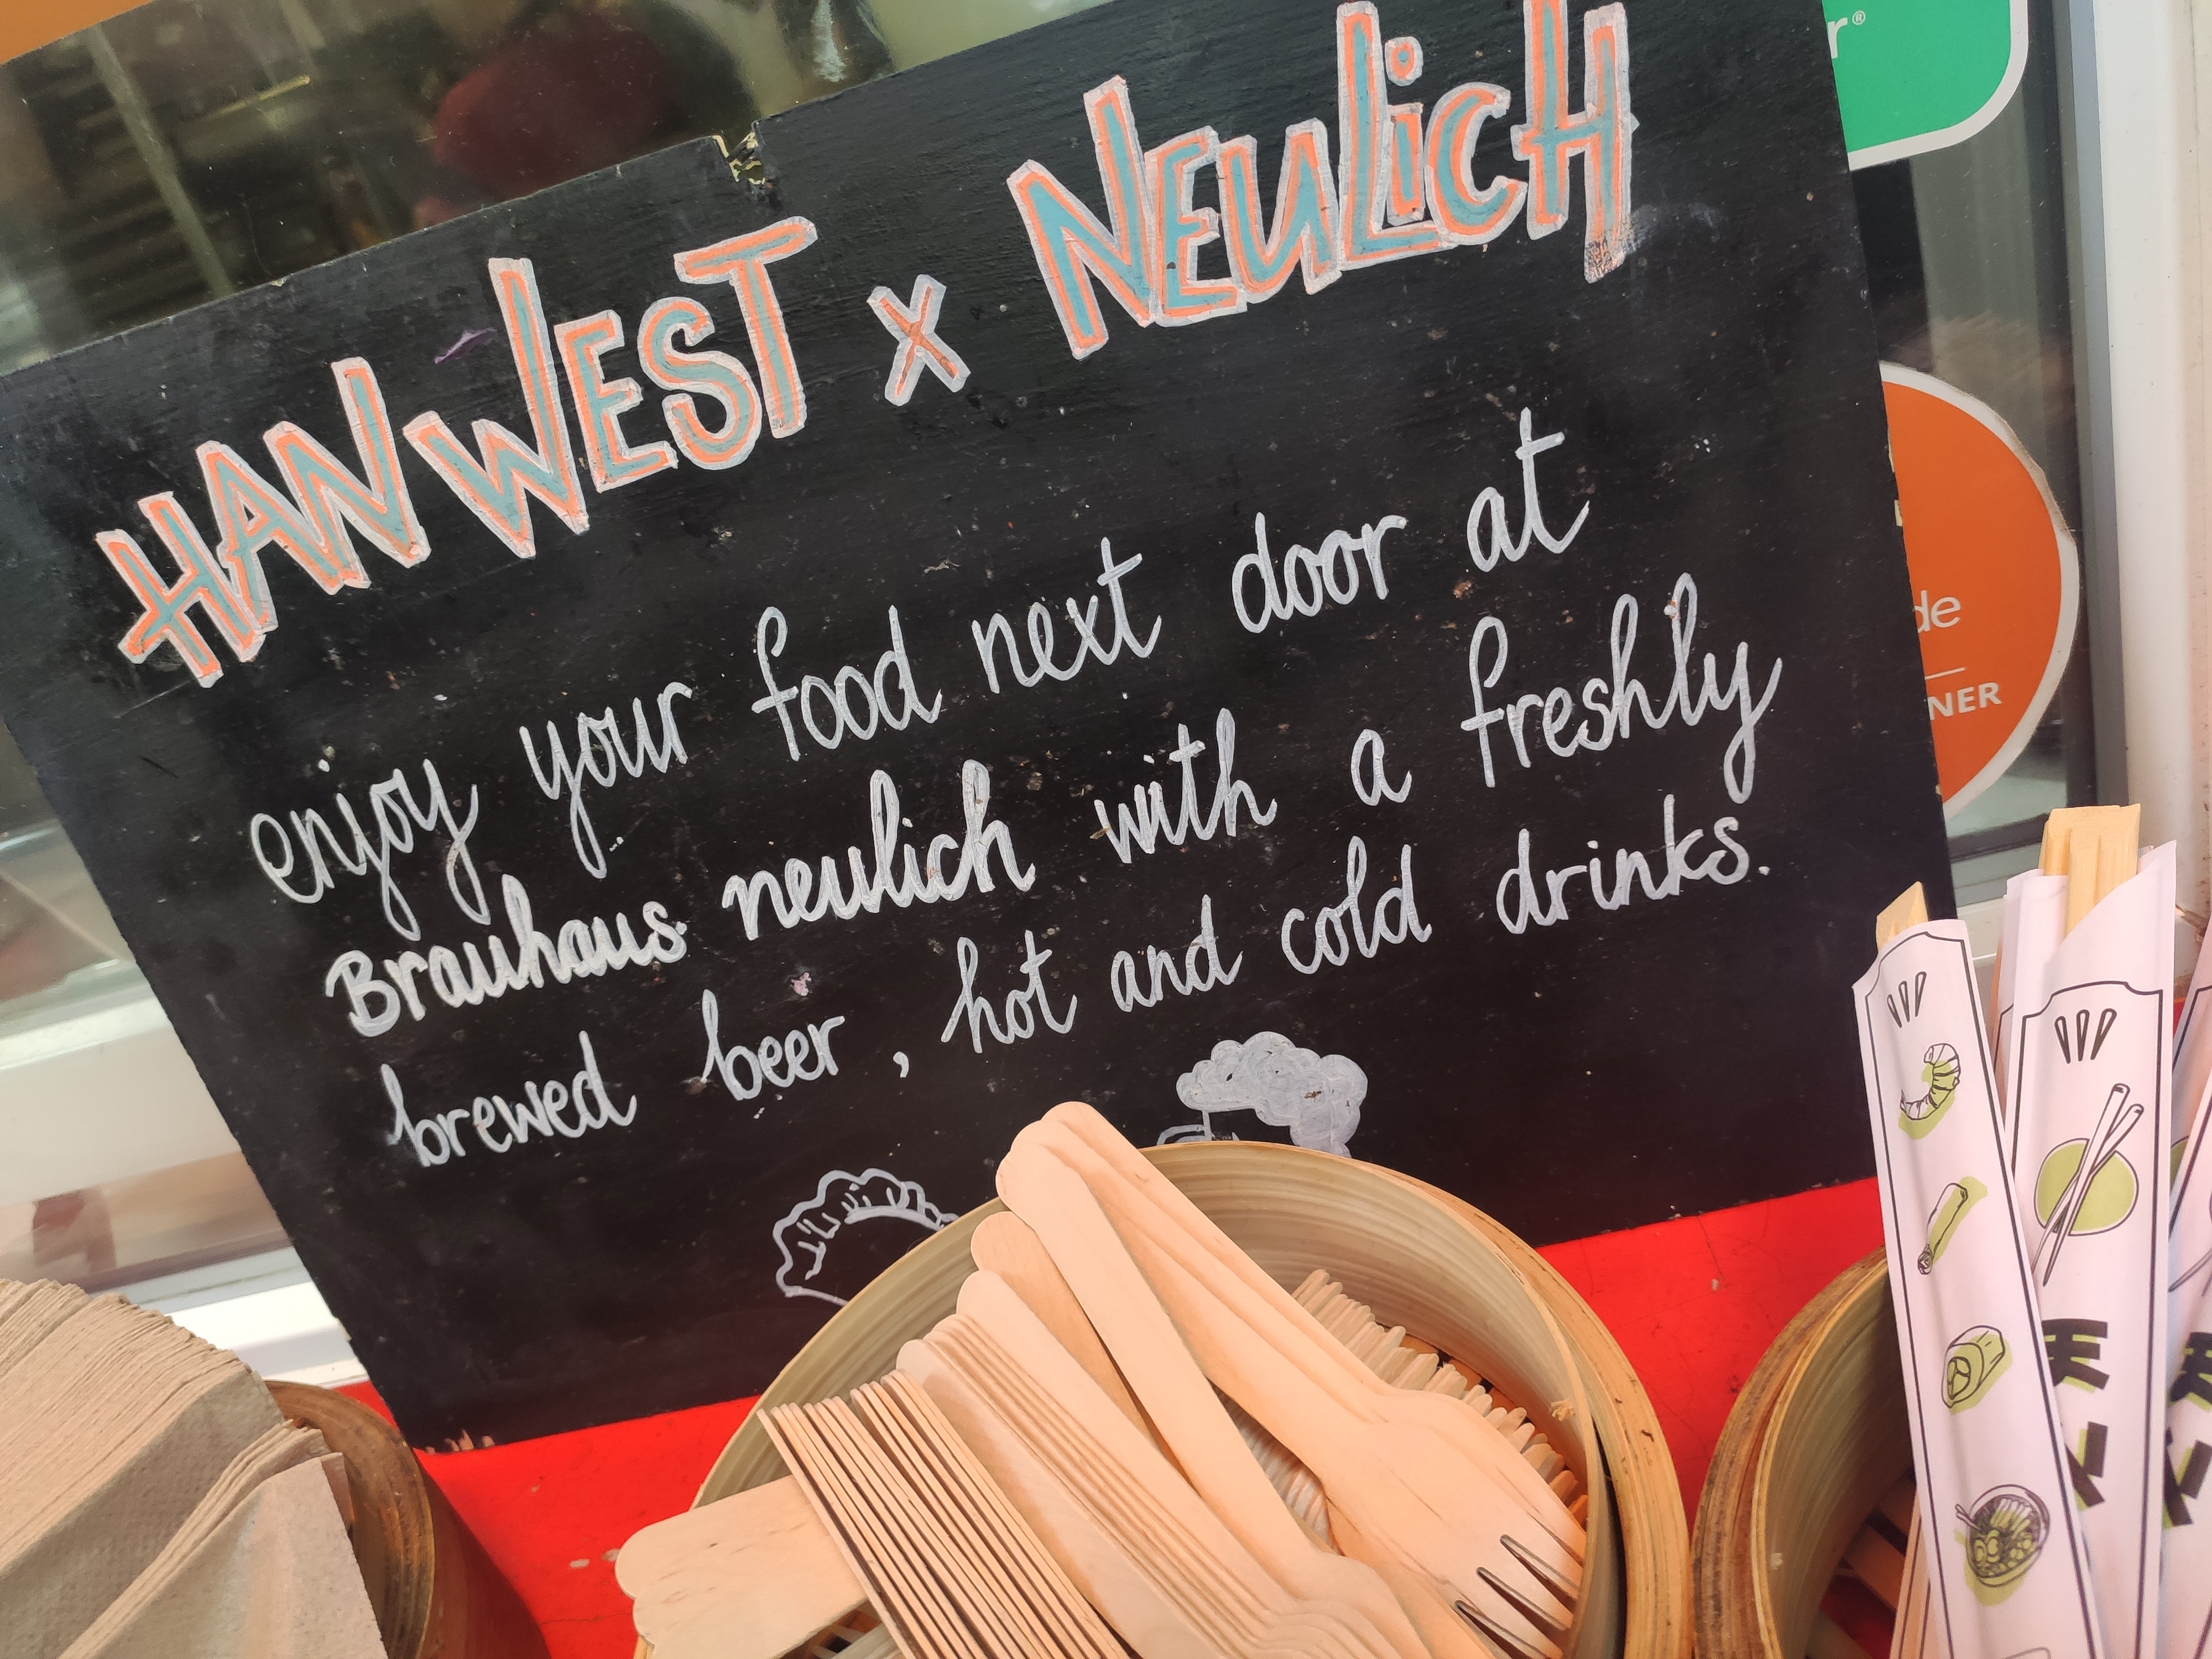 HAN WEST x NEULiCH
enjoy your food next door at
Brauhaus neulich with a freshly
brewed beer, hot and cold drinks.
r®
de
NER